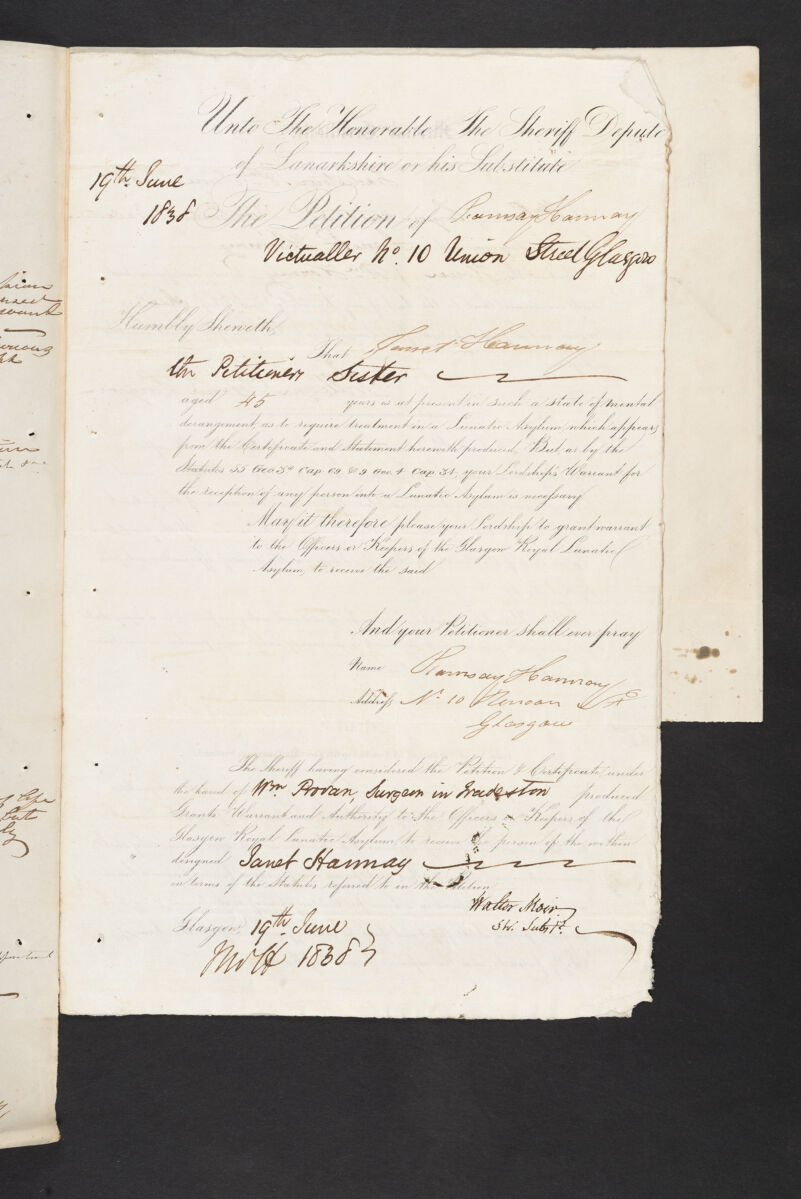 Unto The Honorable The Sheriff Depute
of Lanarkshire or his Substitute
19th June
1838
The Petition of Ramsay Hannay
Victualler No. 10 Union Street Glasgow
Humbly Sheweth,
That Janet Hannay
the Petitioners Sister
aged 45 years is at present in such a state of mental
derangement, as to require treatment in a Lunatic Asylum, which appears
from the Certificate and Statement herewith produced. But, as by the
Statutes 55 Geo 3d Cap. 69 & 9 Geo. 4 Cap. 34, your Lordship's Warrant for
the reception of any person into a Lunatic Asylum is necessary
May it therefore please your Lordship to grant warrant
to the Officers or Keepers of the Glasgow Royal Lunatic
Asylum, to receive the said
And your Petitioner shall ever pray
Name Ramsay Hannay
Address No 10 Union St
Glasgow
The Sheriff having considered the Petition & Certificate under
the hand of Wm. Surgeon in Tradeston produced
Grants Warrant and Authority to the Officers or Keepers of the
Glasgow Royal Lunatic Asylum to receive the person of the within
designed Janet Hannay
in terms of the Statutes referred to in the Petition
Walter Moir
Sh. Subst.
Glasgow, 19th June
1838